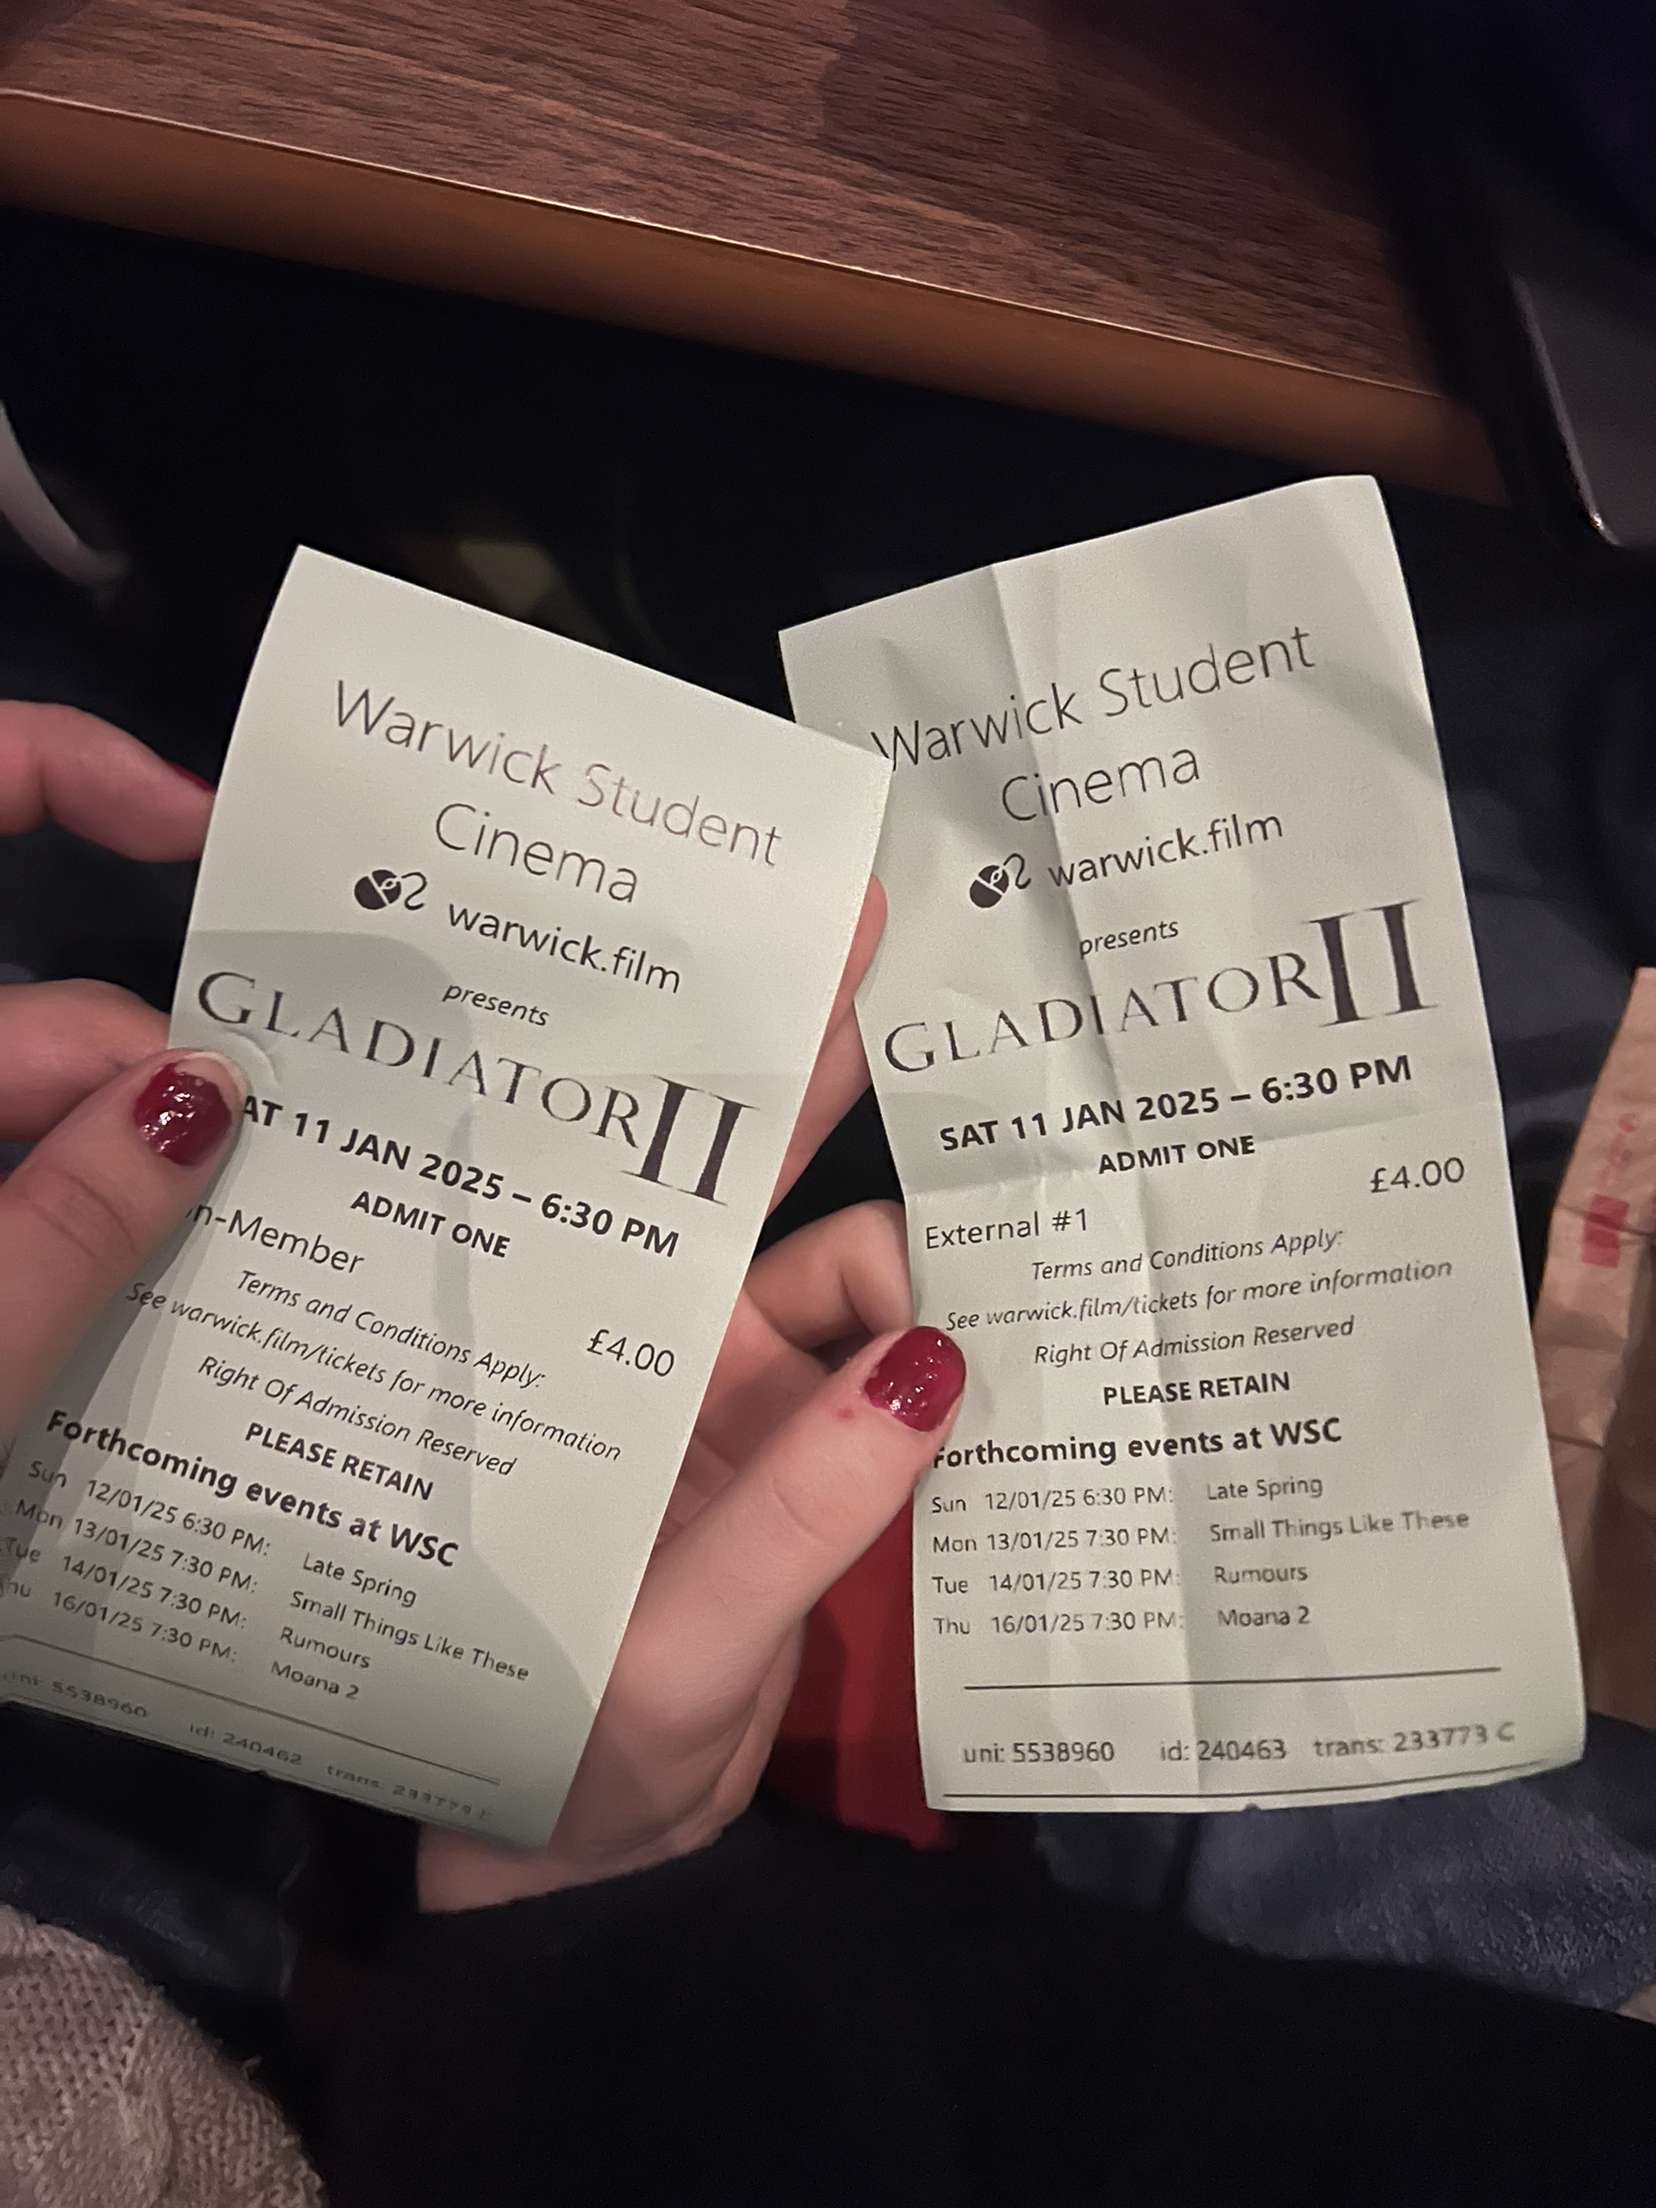 Warwick Student
Cinema
warwick.film
presents
GLADIATOR II
AT 11 JAN 2025 – 6:30 PM
ADMIT ONE
n-Member
£4.00
Terms and Conditions Apply:
See warwick.film/tickets for more information
Right Of Admission Reserved
PLEASE RETAIN
Forthcoming events at WSC
Sun 12/01/25 6:30 PM: Late Spring
Mon 13/01/25 7:30 PM: Small Things Like These
Tue 14/01/25 7:30 PM: Rumours
hu 16/01/25 7:30 PM: Moana 2
uni: 5538960 id: 240462 trans: 233773 C
Warwick Student
Cinema
warwick.film
presents
GLADIATOR II
SAT 11 JAN 2025 – 6:30 PM
ADMIT ONE
£4.00
External #1
Terms and Conditions Apply:
See warwick.film/tickets for more information
Right Of Admission Reserved
PLEASE RETAIN
Forthcoming events at WSC
Sun 12/01/25 6:30 PM: Late Spring
Mon 13/01/25 7:30 PM: Small Things Like These
Tue 14/01/25 7:30 PM: Rumours
Thu 16/01/25 7:30 PM: Moana 2
uni: 5538960 id: 240463 trans: 233773 C